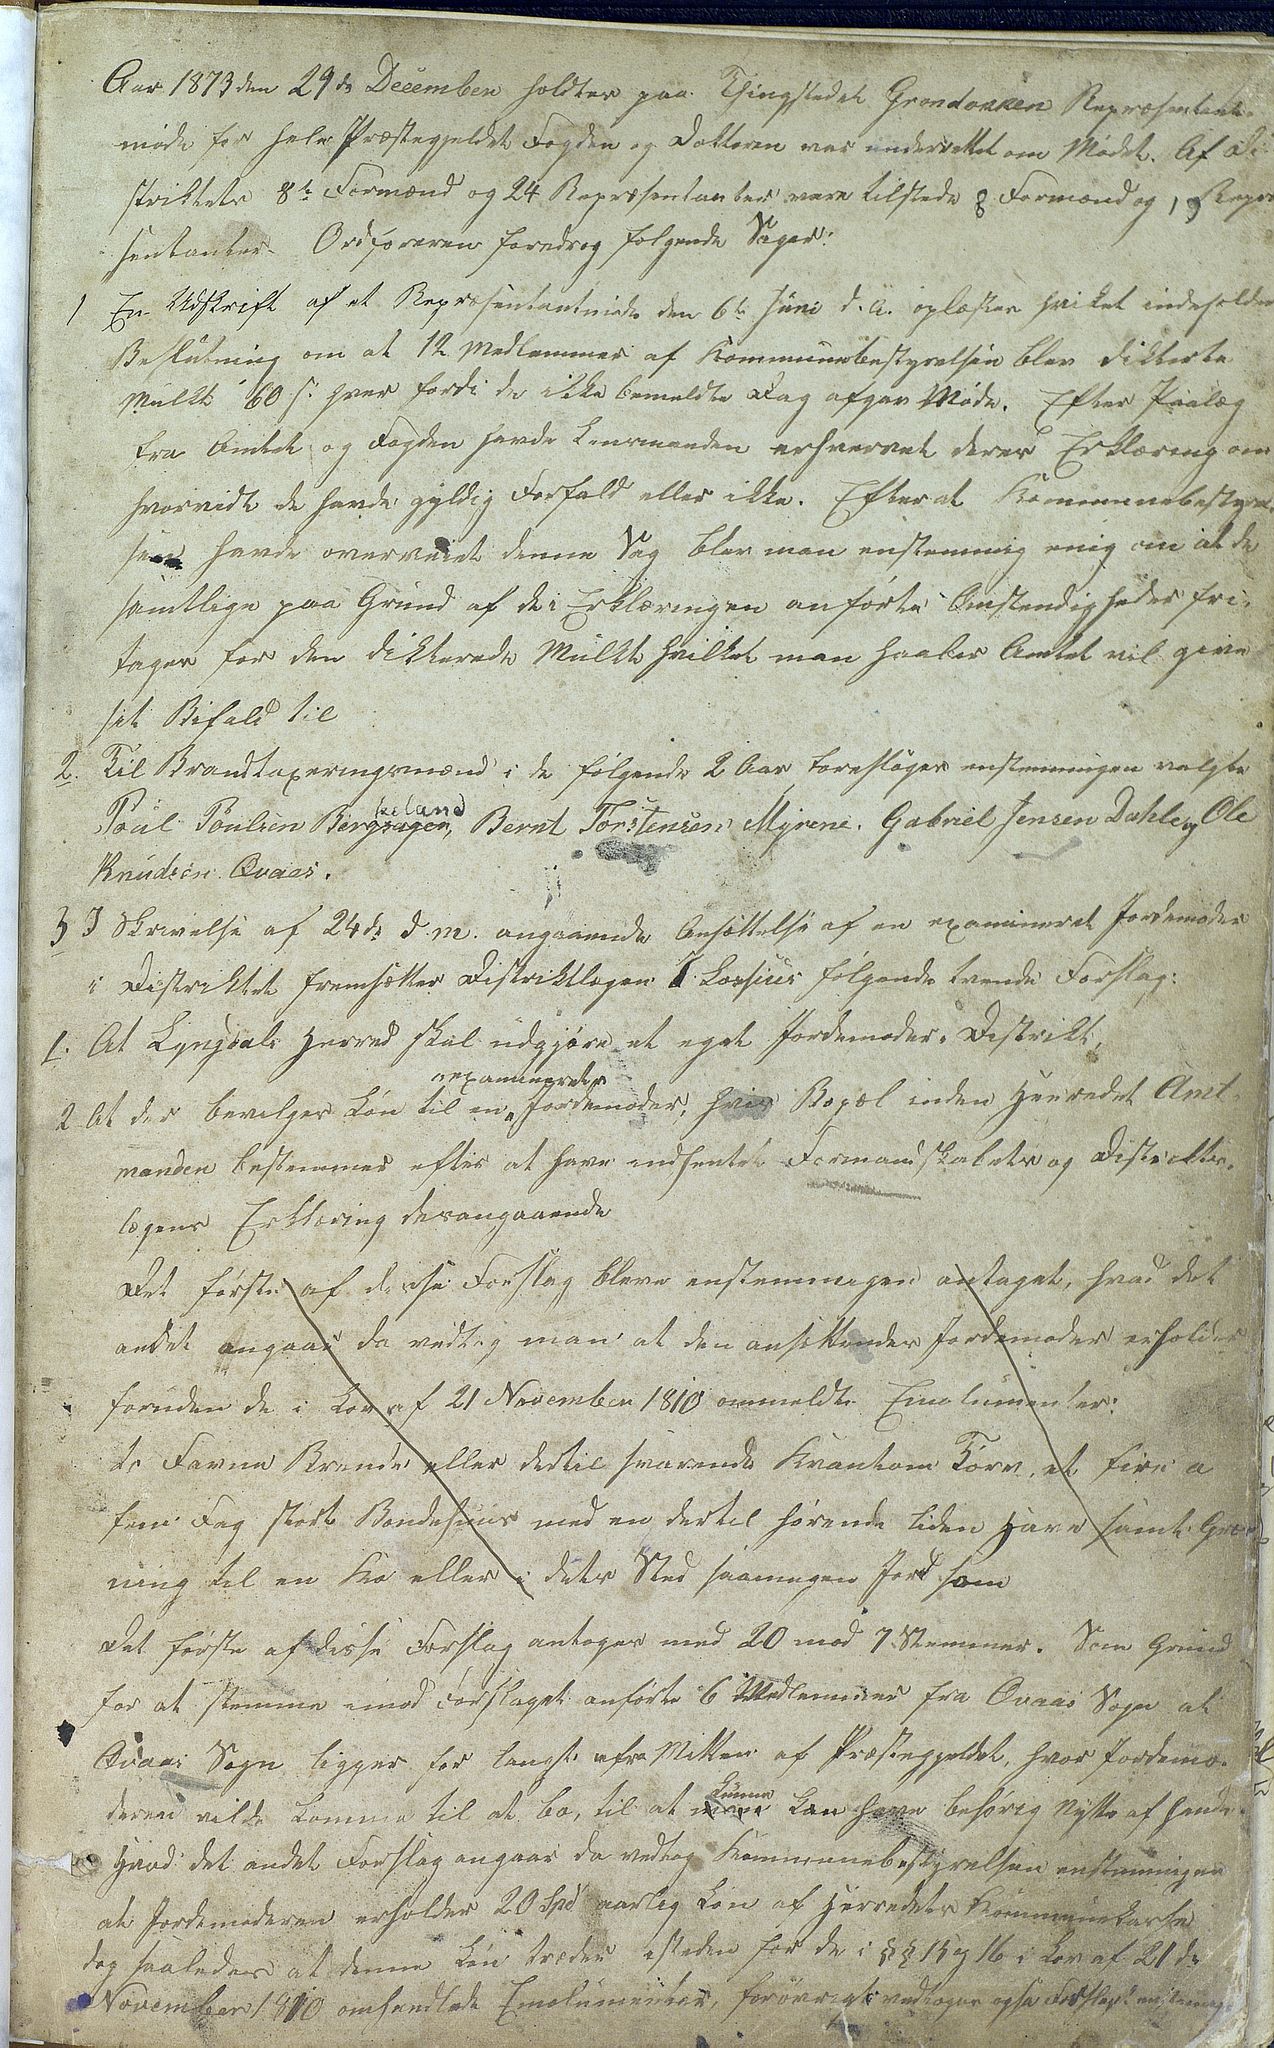 Aar 1873 den 29de December holdtes paa Thingstedet Grøndokken Repræsentant-
møde for hele Præstegjeldet Fogden og Doktoren var underrettet om Mødet. Af Di-
striktets 8te Formænd og 24 Repræsentanter vare tilstede 8 Formænd og 19 Repræ-
sentanter. Ordføreren foredrog følgende Sager:
1 En Udskrift af et Repræsentantmøde den 6te Juni d. A. oplæstes hvilket indeholder
Beslutning om at 12 Medlemmer af Kommunebestyrelsen blev dikterte
Mulkt 60 s. hver fordi de ikke bemeldte Dag afgav Møde. Efter Paalæg
fra Amtet og Fogden havde Lensmanden erhvervet deres Erklæring om
hvorvidt de havde gyldig Forfald eller ikke. Efterat Kommunebestyrel-
sen havde overveiet denne Sag blev man enstemmig enig om at de
samtlige paa Grund af de i Erklæringen anførte Omstendigheder fri-
tages for den dikterede Mulkt hvilket man haaber Amtet vil give
sit Bifald til
2. Til Brandtaxeringsmænd i de følgende 2 Aar foresloges enstemmigen valgte
Poul Poulsen Bergsagen, Keland Bernt Torstensen Myrene. Gabriel Jensen Dahle og Ole
Knudsen Qvaas.
3 I Skrivelse af 24de d. m. angaaende Ansættelse af en examineret Jordemoder
i Distriktet fremsætter Distriktlægen Lossius følgende tvende Forslag:
1. At Lyngdals Herred skal udgjøre et eget Jordemoder-Distrikt,
2 At der bevilges Løn til en examineret Jordemoder, hvis Bopæl inden Herredet Amt-
manden bestemmer efter at have indhentet Formandskabets og Distrikts-
lægens Erklæring derangaaende
Det første af disse Forslag bleve enstemmigen antaget, hvad det
andet angaar da vedtog man at den ansættendes Jordemoder erholder
foruden de i Lov af 21 November 1810 ommeldte Emolumenter:
to Favne Brende eller dertil svarende Kvantum Torv, et fire a
fem Fag stort Bondehuus med en dertil hørende liden Have samt Græs-
ning til en Ko eller i dets Sted saamegen Jord som
Det første af disse Forslag antoges med 20 mod 7 Stemmer. Som Grund
for at stemme imod Forslaget anførte 6 Medlemmer fra Qvaas Sogn at
Qvaas Sogn ligger for langt fra Mitten af Præstegjeldet, hvor Jordemo-
deren vilde komme til at bo, til at kunne have behørig Nytte af hende
Hvad det andet Forslag angaar da vedtog Kommunebestyrelsen enstemmigen
at Jordemoderen erholder 20 Spd aarlig Løn af Herredets Kommunekasse
dog saaledes at denne Løn træder isteden for de i §§ 15 og 16 i Lov af 21de
November 1810 omhandlede Emolumenter, forøvrigt vedtoges ogsaa Forslaget enstemmig